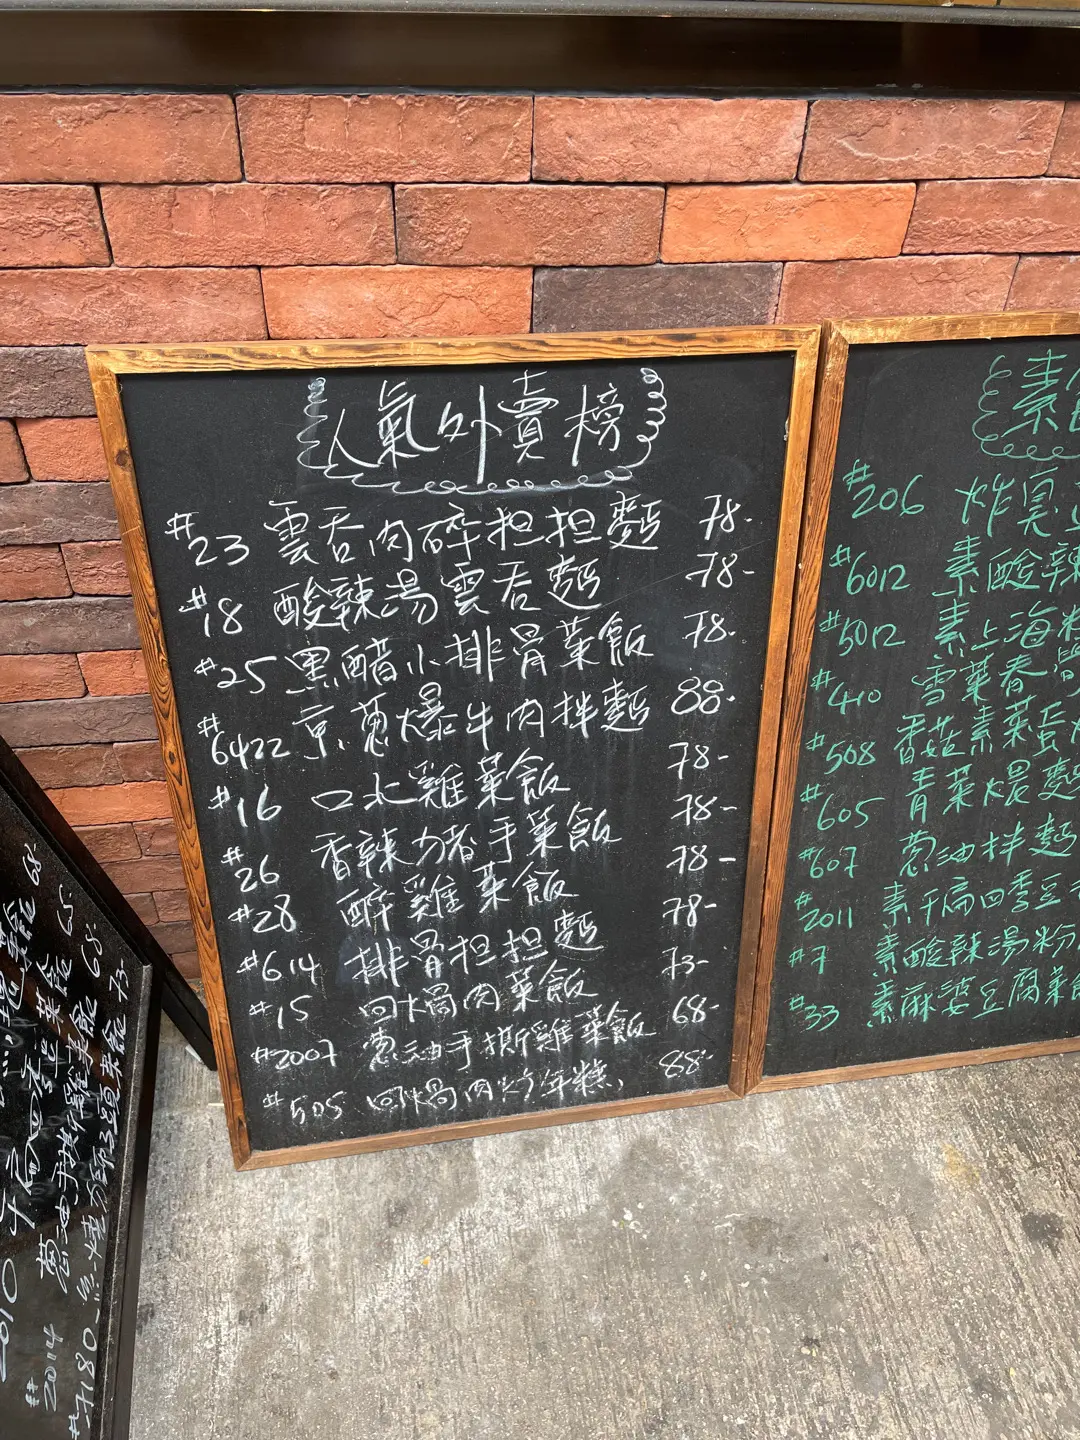 人氣外賣榜
#23 雲吞肉碎担担麵 78.
#18 酸辣湯雲吞麵 78-
#25 黑醋小排骨菜飯 78.
#6422 京葱爆牛肉拌麵 88.
#16 口水雞菜飯 78-
#26 香辣猪手菜飯 78-
#28 醉雞菜飯 78-
#614 排骨担担麵 78-
#15 回鍋肉菜飯 73-
#2007 葱油手撕雞菜飯 68-
#505 回鍋肉炒年糕 88-
素
#206 炸臭
#6012 素酸辣
#5012 素上海粗
#410 雪菜春
#508 香菇素菜蛋
#605 青菜煨麵
#607 葱油拌麵
#2011 素干扁四季豆
#7 素酸辣湯粉
#33 素麻婆豆腐菜飯
2010 干扁四季豆菜飯 65-
#2014 葱油手撕雞菜飯 68-
#7180 73-